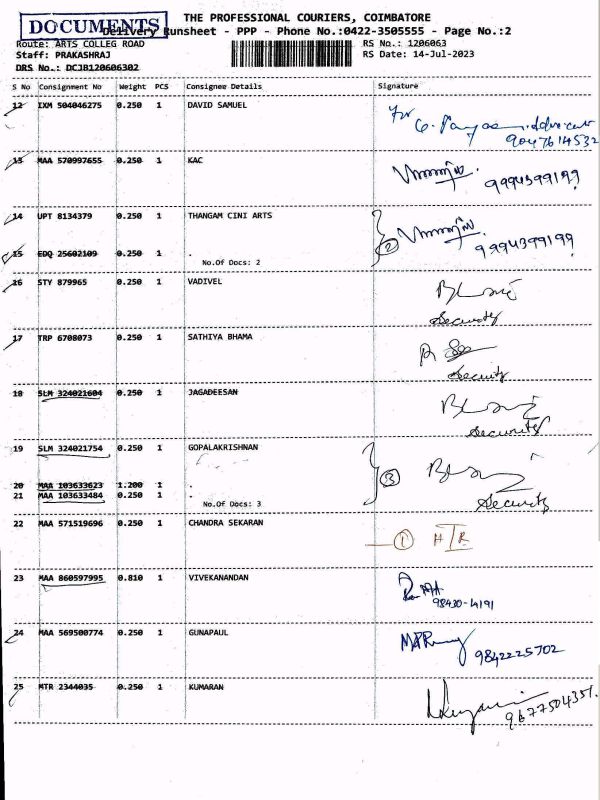 DOCUMENTS
THE PROFESSIONAL COURIERS, COIMBATORE
Delivery Runsheet - PPP - Phone No.:0422-3505555 - Page No.:2
Route: ARTS COLLEG ROAD RS No.: 1206063
Staff: PRAKASHRAJ RS Date: 14-Jul-2023
DRS No.: DCJB120606302
S No Consignment No Weight PCS Consignee Details Signature
12 IXM 504046275 0.250 1 DAVID SAMUEL
For
9047614532
13 MAA 570997655 0.250 1 KAC
9994399199
14 UPT 8134379 0.250 1 THANGAM CINI ARTS
2
9994399199
15 EDQ 25602109 0.250 1 .
No.Of Docs: 2
16 STY 879965 0.250 1 VADIVEL
Security
17 TRP 6708073 0.250 1 SATHIYA BHAMA
Security
18 SLM 324021604 0.250 1 JAGADEESAN
Security
19 SLM 324021754 0.250 1 GOPALAKRISHNAN
3
20 MAA 103633623 1.200 1 .
21 MAA 103633484 0.250 1 .
No.Of Docs: 3
Security
22 MAA 571519696 0.250 1 CHANDRA SEKARAN
1
23 MAA 860597995 0.810 1 VIVEKANANDAN
98430-4191
24 MAA 569500774 0.250 1 GUNAPAUL
9842225702
25 MTR 2344035 0.250 1 KUMARAN
9677504351